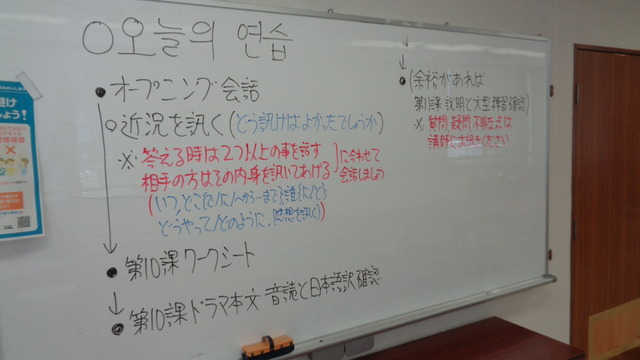 ○오늘의 연습
●オープニング会話
○近況を訊く(どう訊けばよかったでしょうか)
※答える時は2つ以上の事を話す
相手の方はその内身を訊いてあげる
に合わせて
会話しましょう
(いつ,どこで/に/へ/から…まで,誰(に/と)
どうやって/どのように,感想を訊く)
●第10課ワークシート
↓
●第10課ドラマ本文 音読と日本語訳確認
↓
●(余裕があれば
第11課 説明と文型練習確認)
※質問,疑問,不明な点は
講師にお訊きください